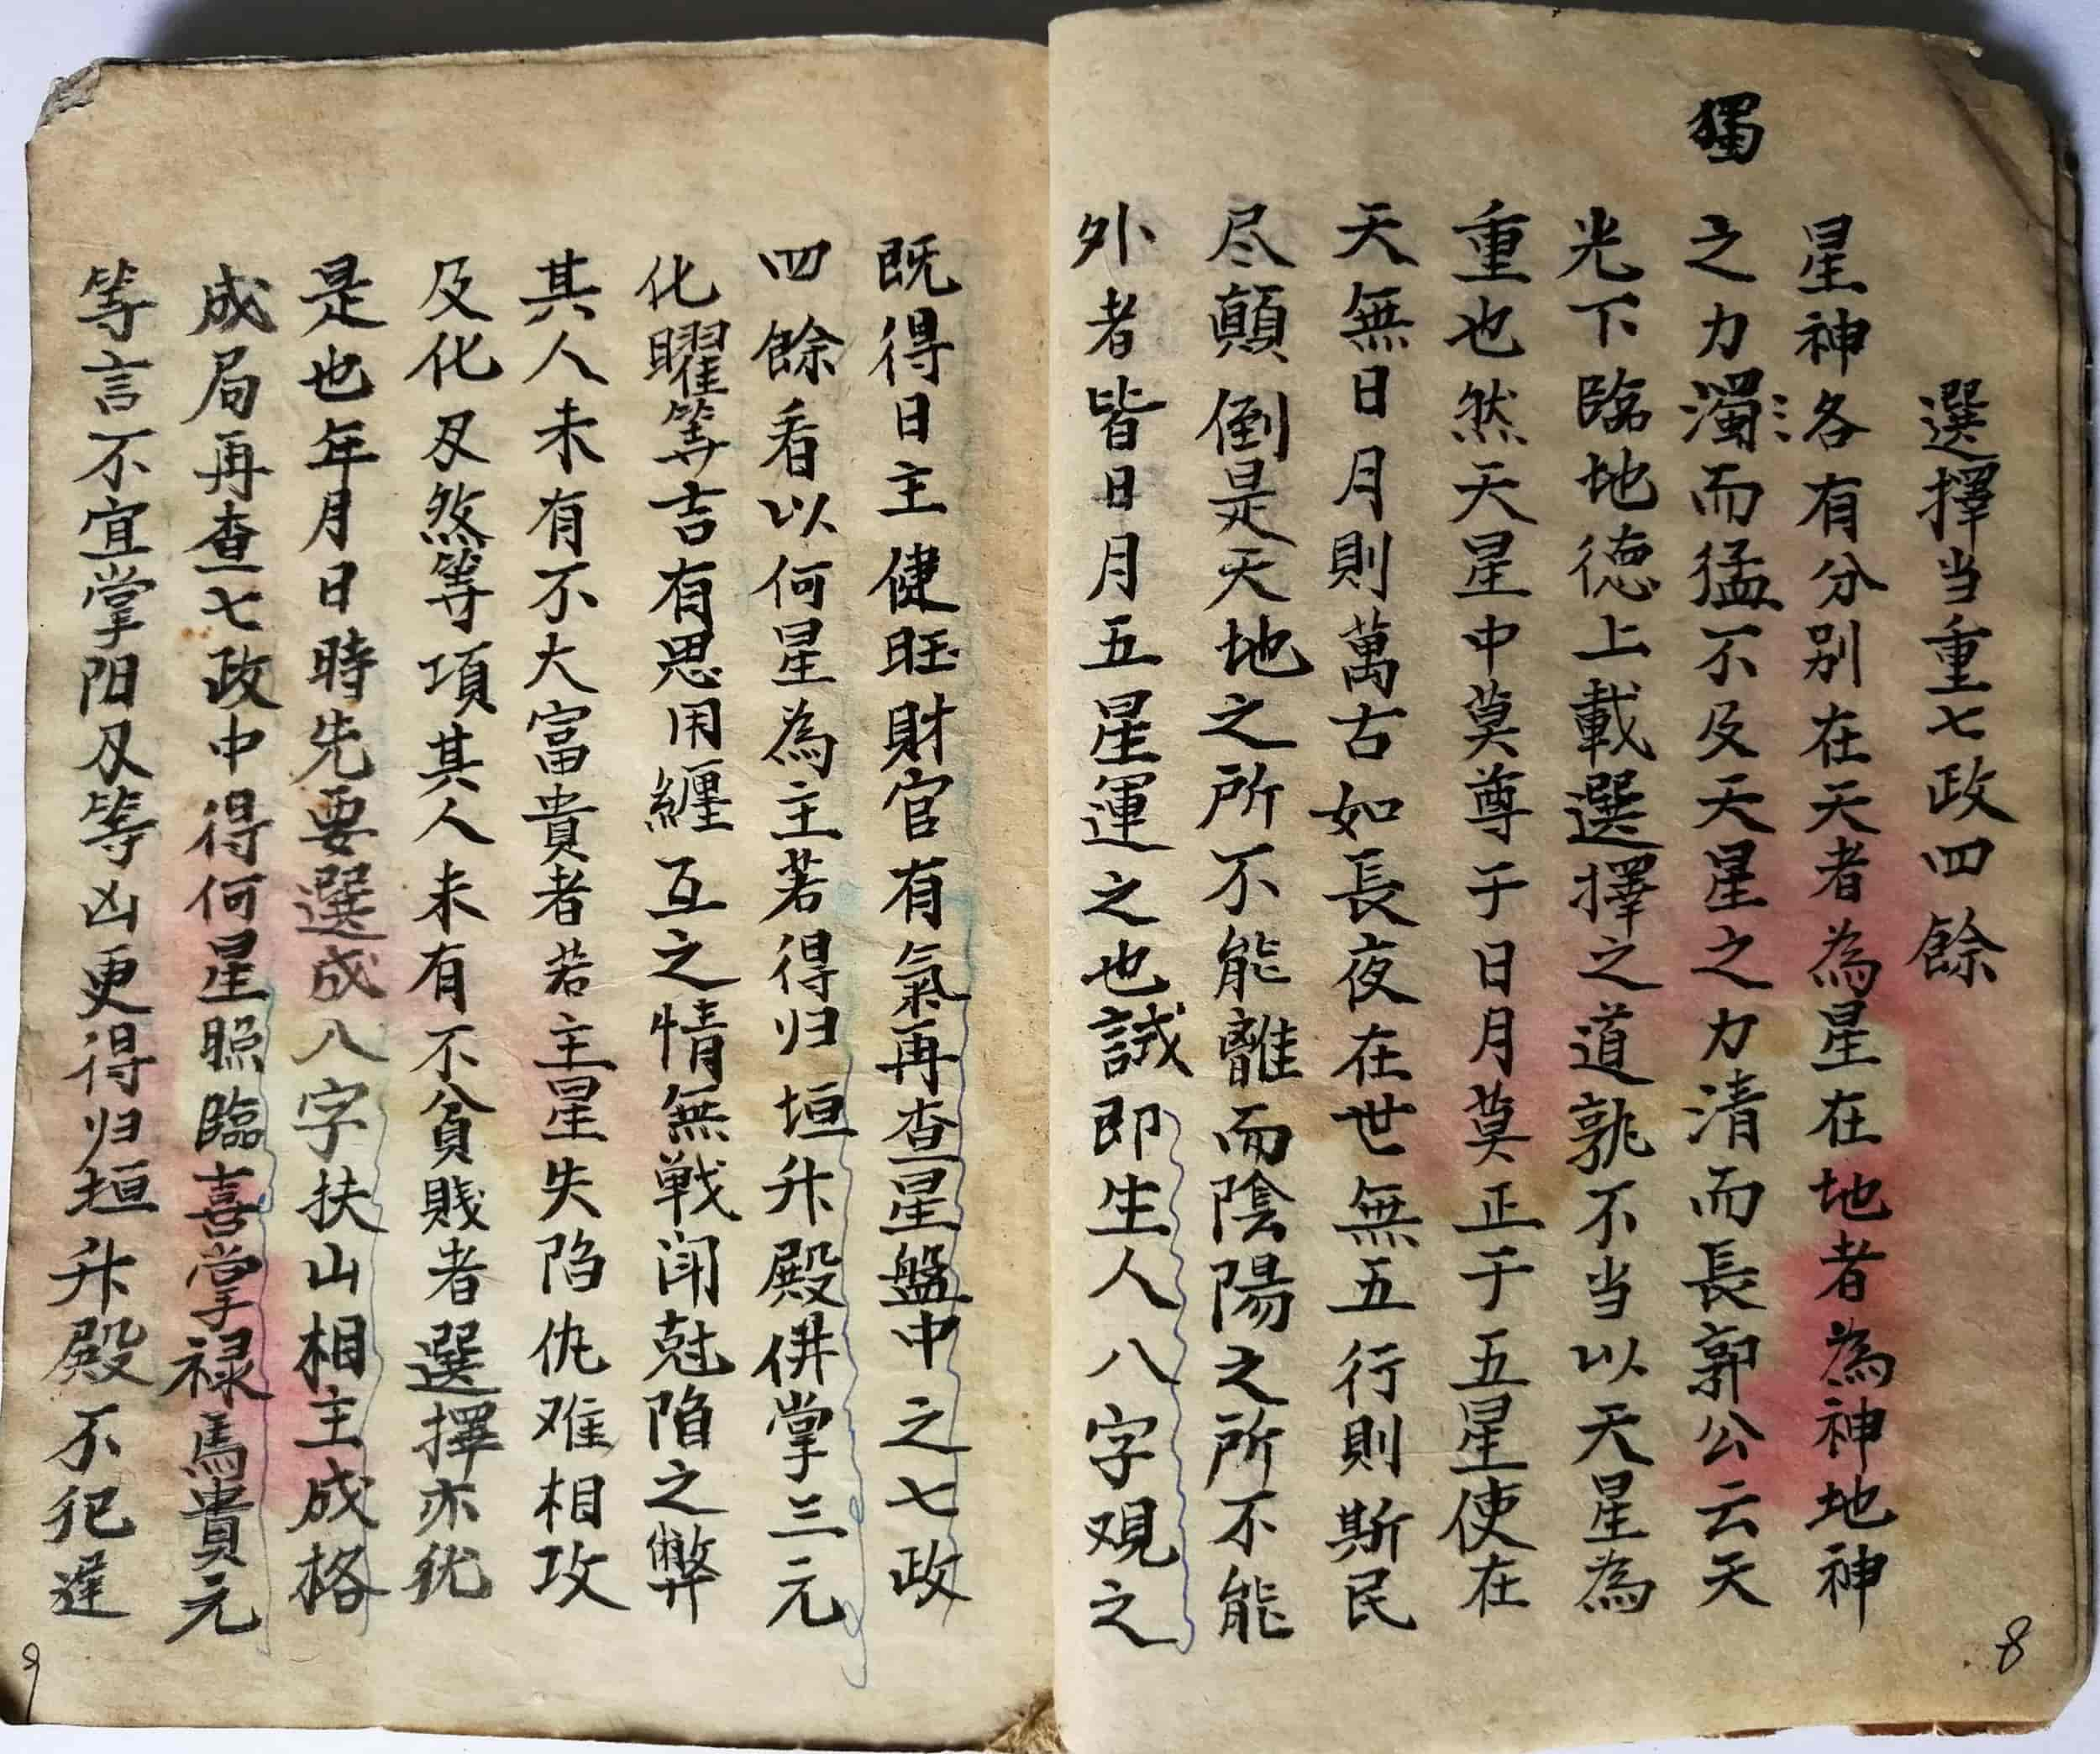 選擇当重七政四餘
星神各有分别在天者為星在地者為神地神
獨
之力濁而猛不及天星之力清而長郭公云天
光下臨地德上載選擇之道孰不当以天星為
重也然天星中莫尊于日月莫正于五星使在
天無日月則萬古如長夜在世無五行則斯民
尽顛倒是天地之所不能離而陰陽之所不能
外者皆日月五星運之也誠即生人八字观之
既得日主健旺財官有氣再查星盤中之七政
四餘看以何星為主若得归垣升殿併掌三元
化曜等吉有恩用纏互之情無戦闹尅陷之弊
其人未有不大富貴者若主星失陷仇难相攻
及化刃煞等項其人未有不貧贱者選擇亦犹
是也年月日時先要選成八字扶山相主成格
成局再查七政中得何星照臨喜掌禄馬貴元
等言不宜掌阳刃等凶更得归垣升殿不犯遅
8
9